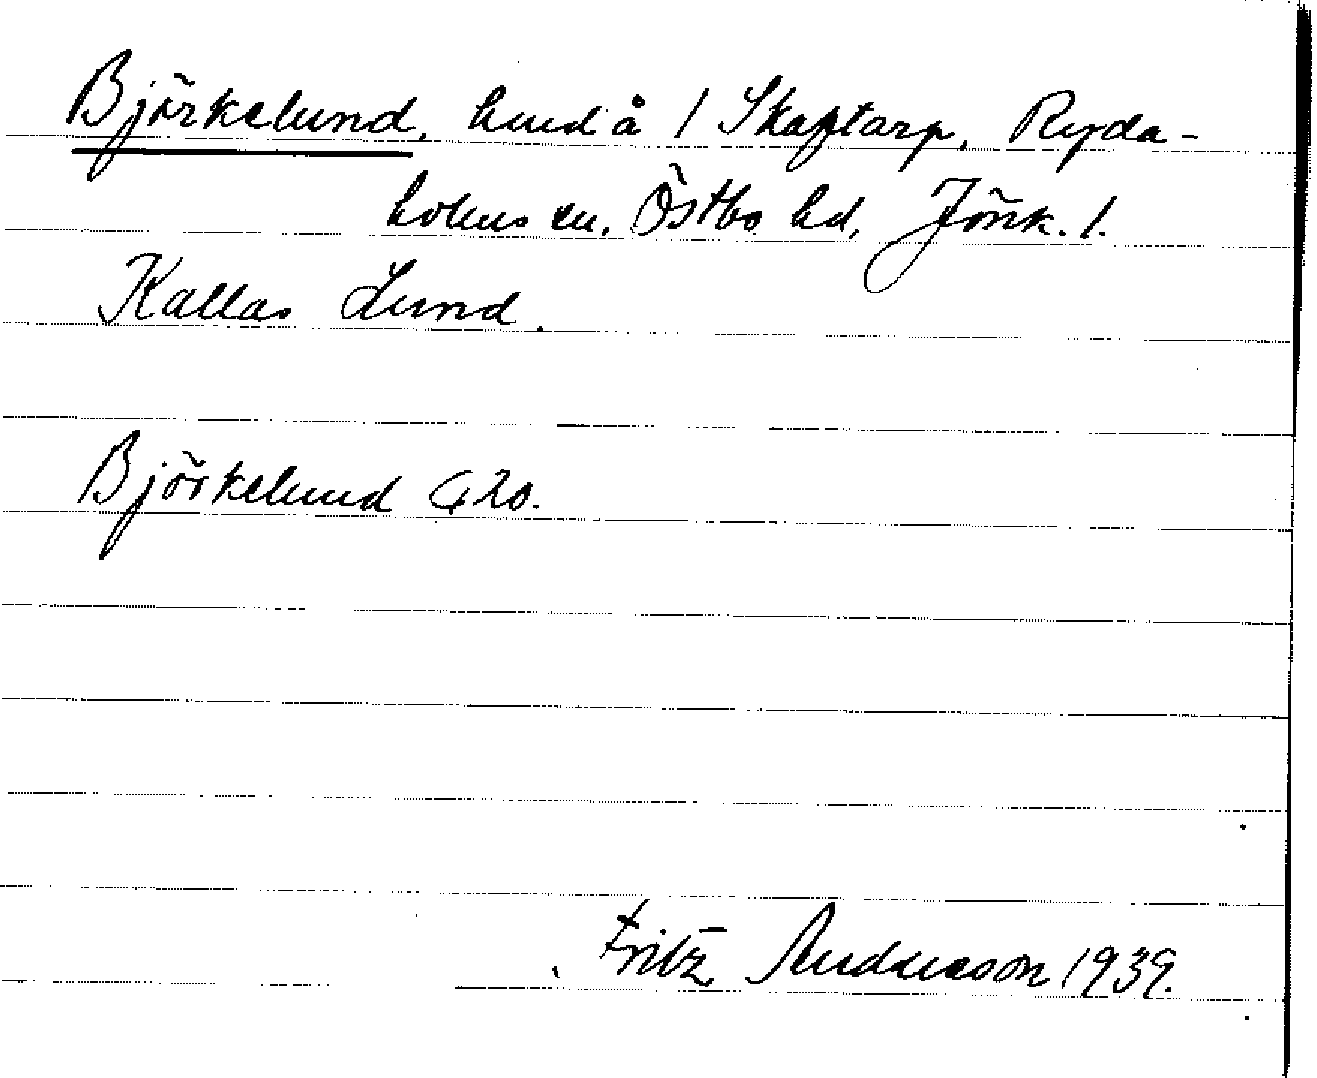 Björkelund, hmd å 1 Skaftarp, Ryda-
holms sn, Östbo hd, Jönk. l.
Kallas Lund.
Björkelund G 20.
Fritz Andersson 1939.